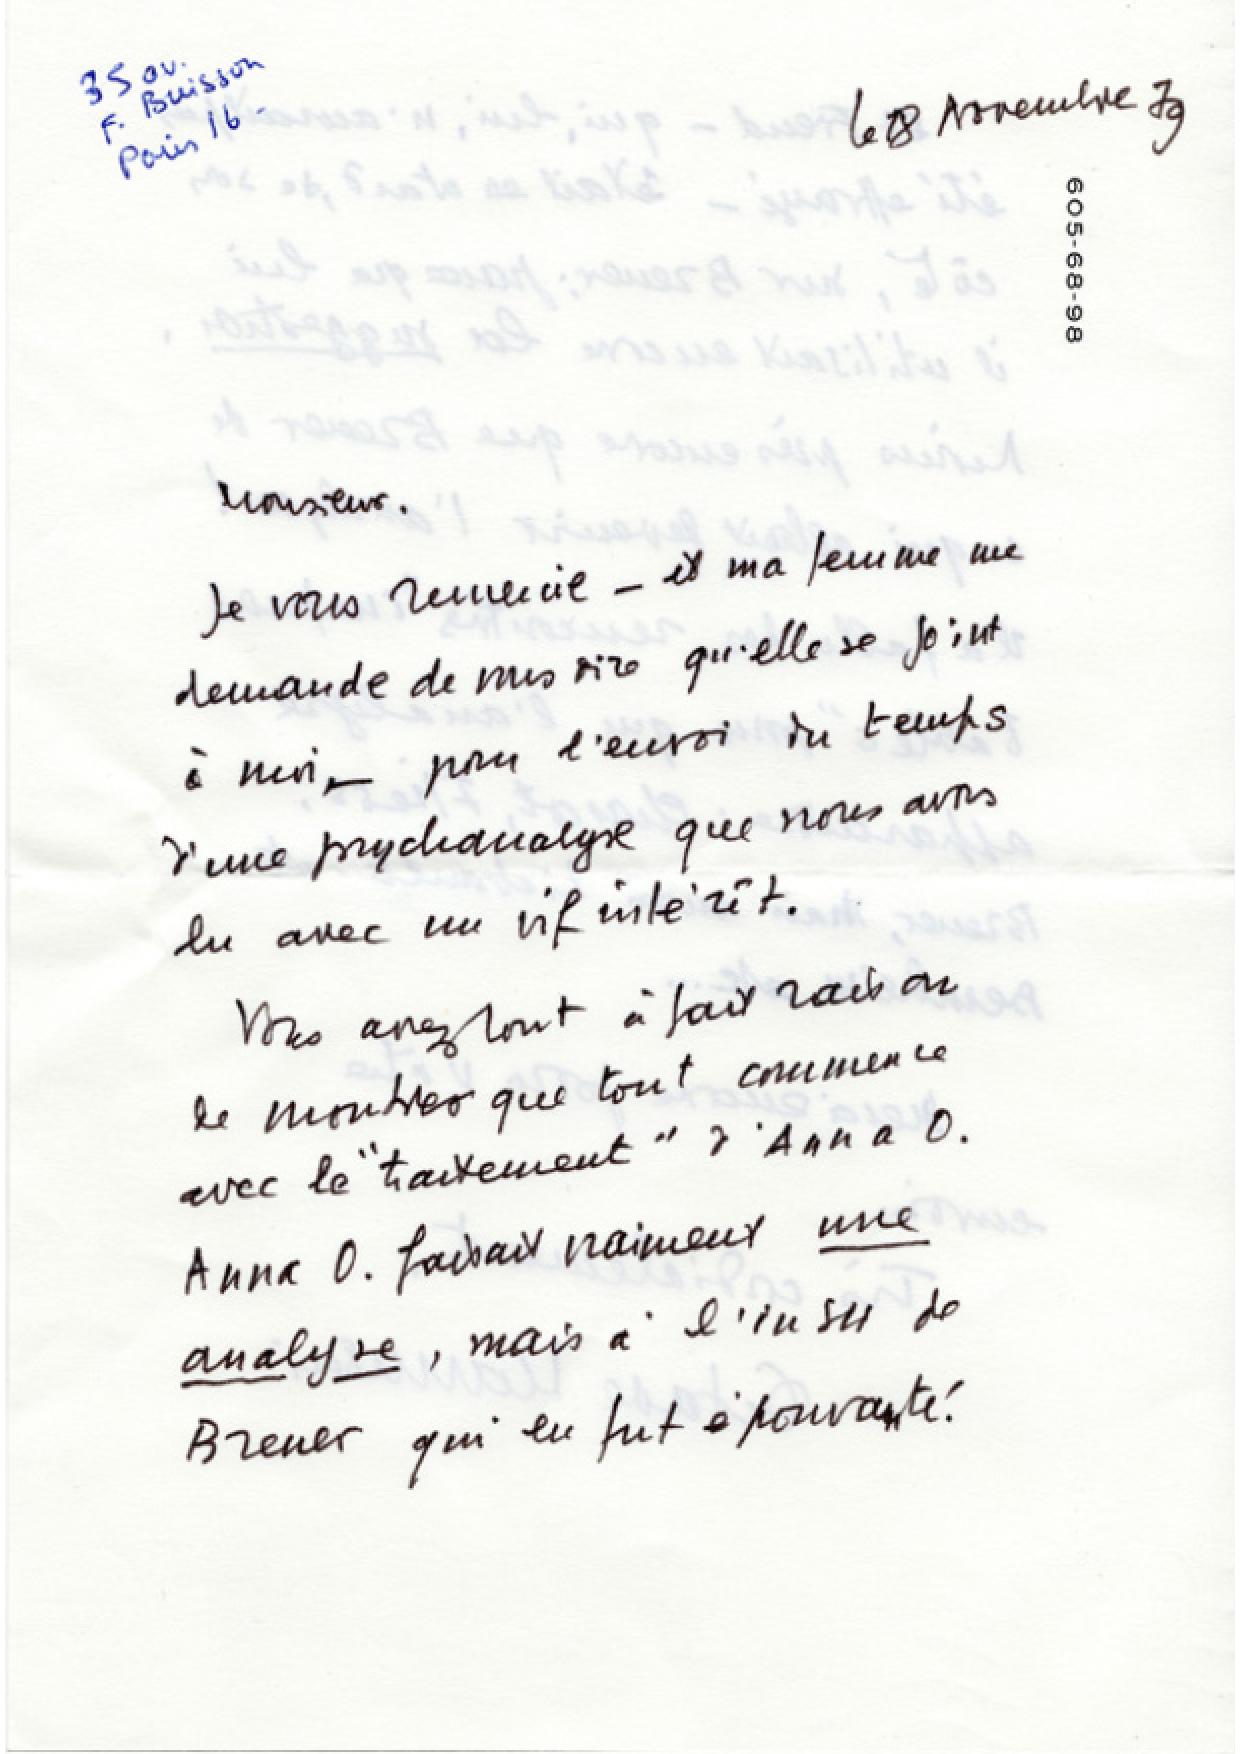 35 av.
F. Buisson
Paris 16 -
le 8 Novembre 79
605-68-98
Monsieur.
Je vous remercie – et ma femme me
demande de vous dire qu'elle se joint
à moi – pour l'envoi du temps
d'une psychanalyse que nous avons
lu avec un vif intérêt.
Vous avez tout à fait raison
de montrer que tout commence
avec le "traitement" d'Anna O.
Anna O. faisait vraiment une
analyse, mais à l'insu de
Breuer qui en fut épouvanté!